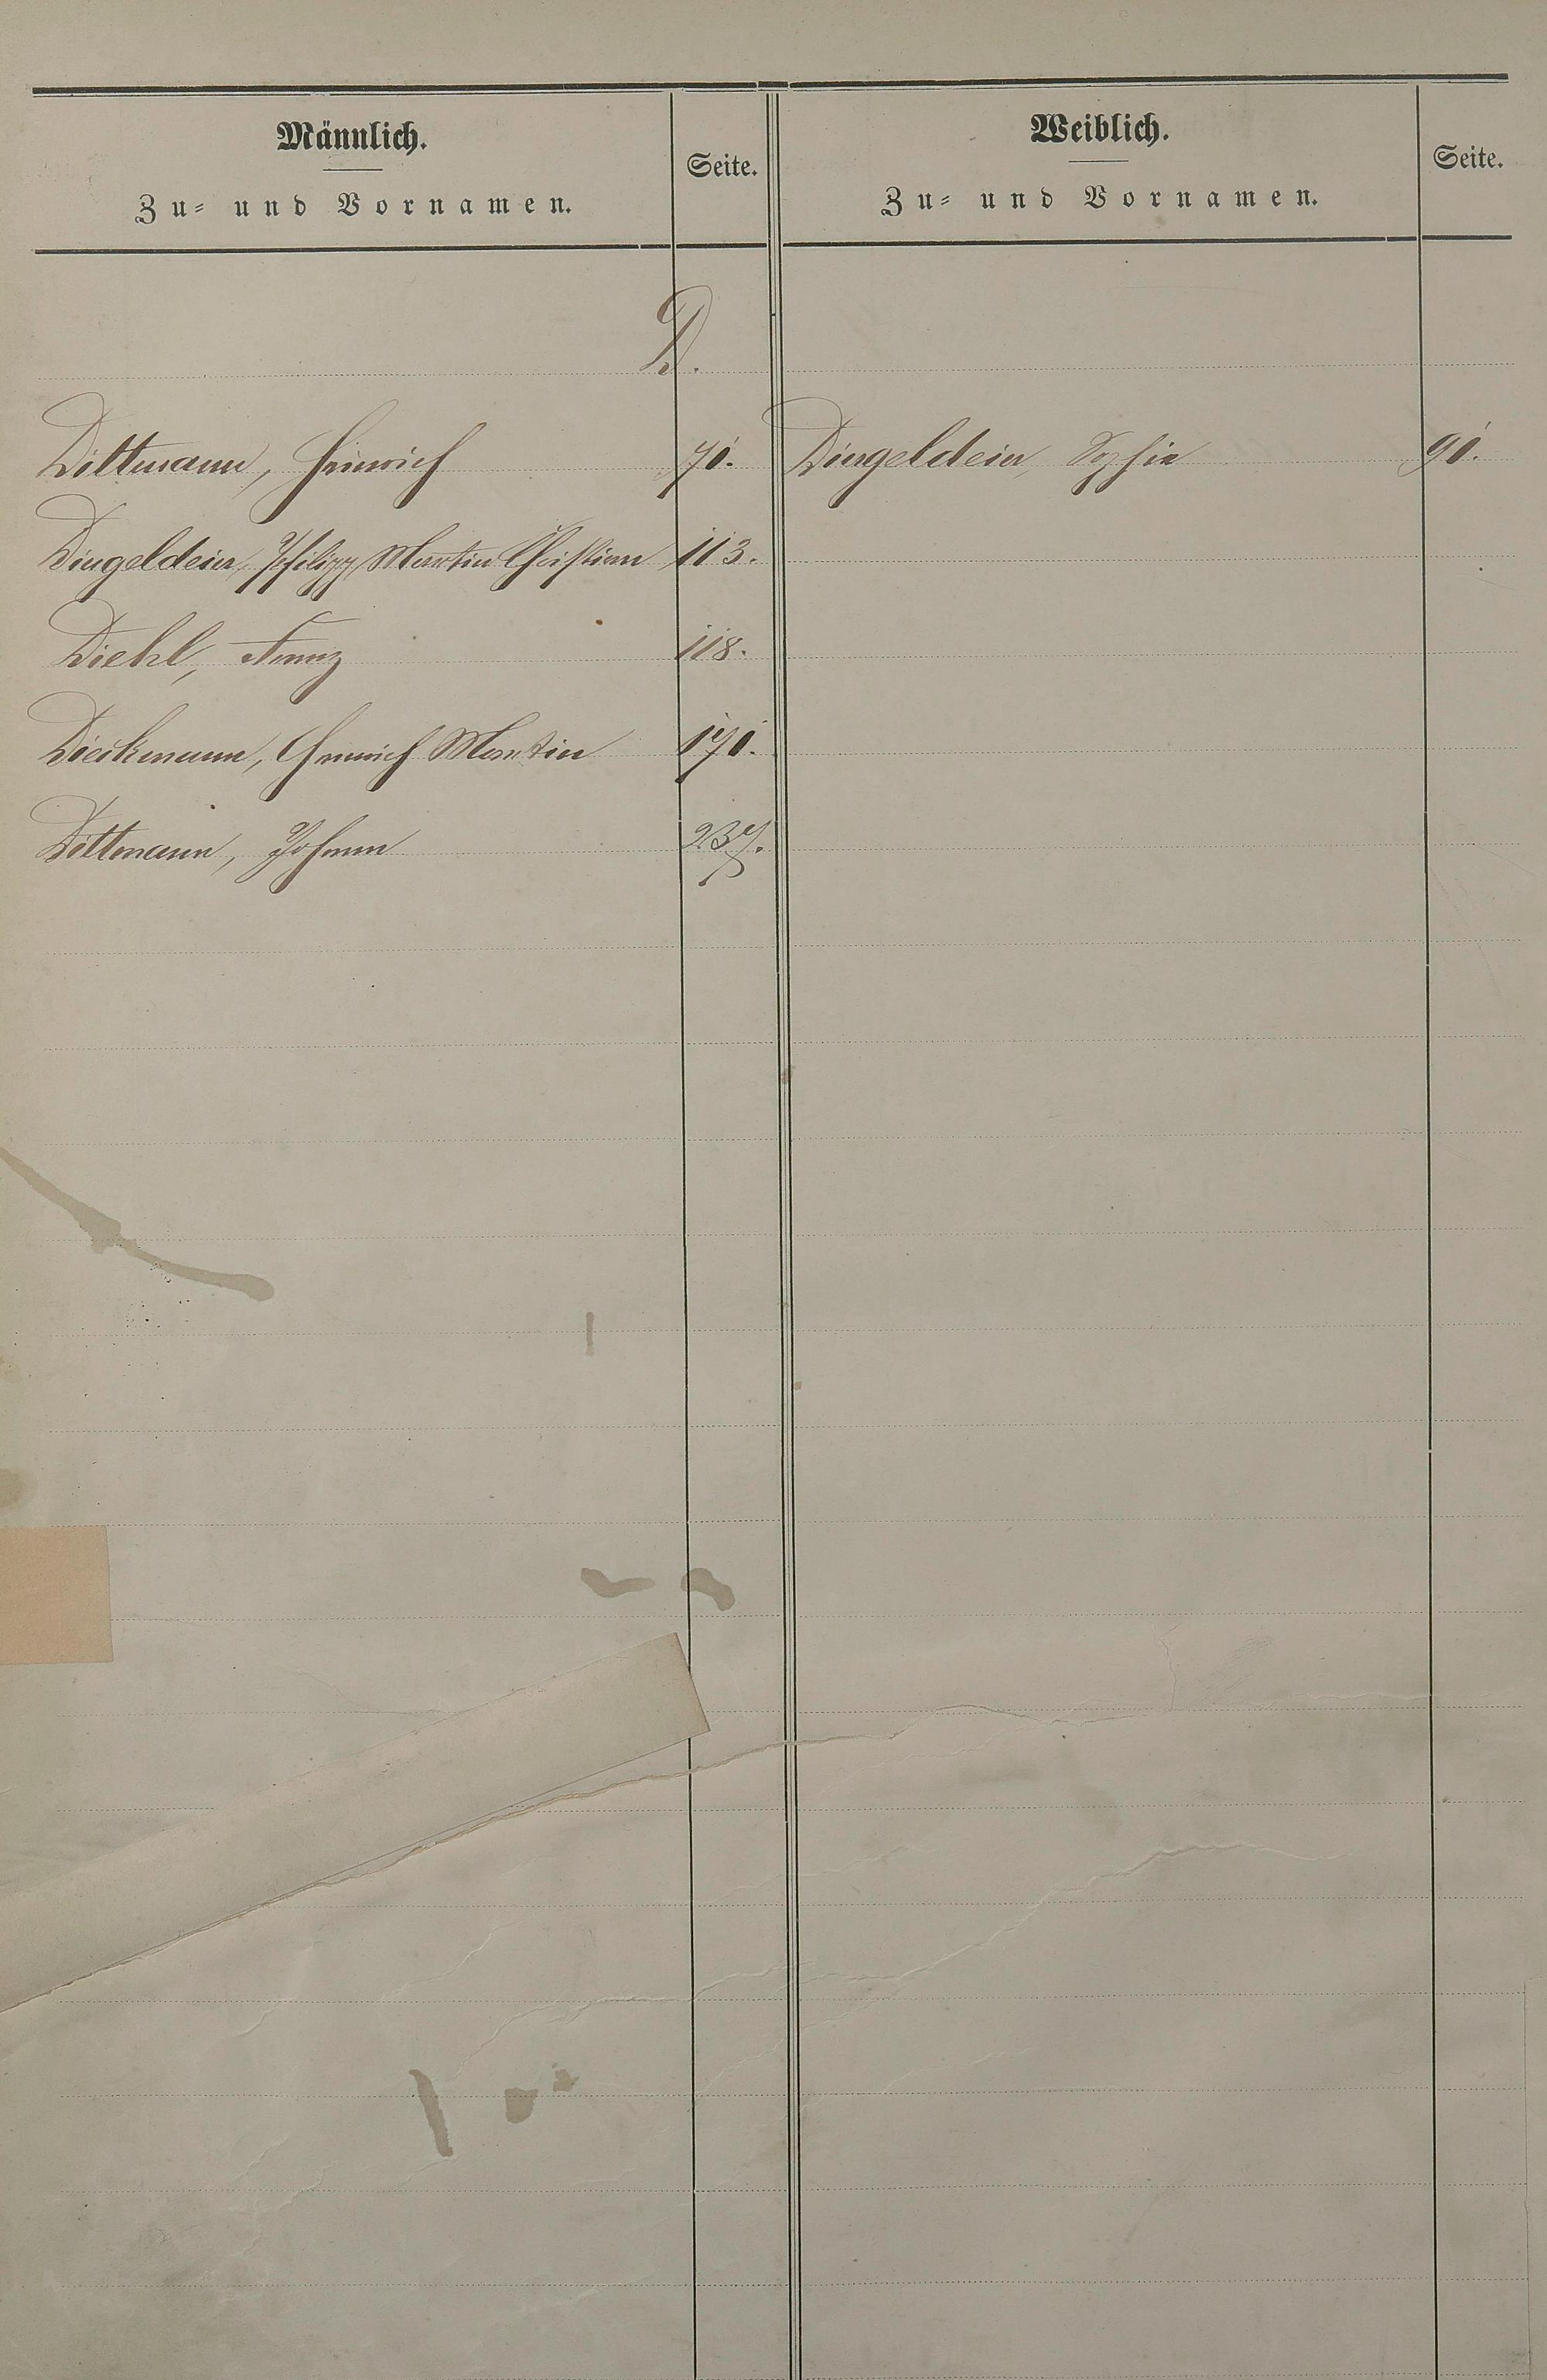 Männlich.
Zu= und Vornamen.
Seite.
Weiblich.
Zu= und Vornamen.
Seite.
D.
Dittmann, Heinrich 70.
Dingeldein, Philipp Martin Christian 113.
Diehl, Franz 118.
Dieckmann, Heinrich Martin 170.
Dittmann, Johann 237.
Dingeldein, Sophie 90.